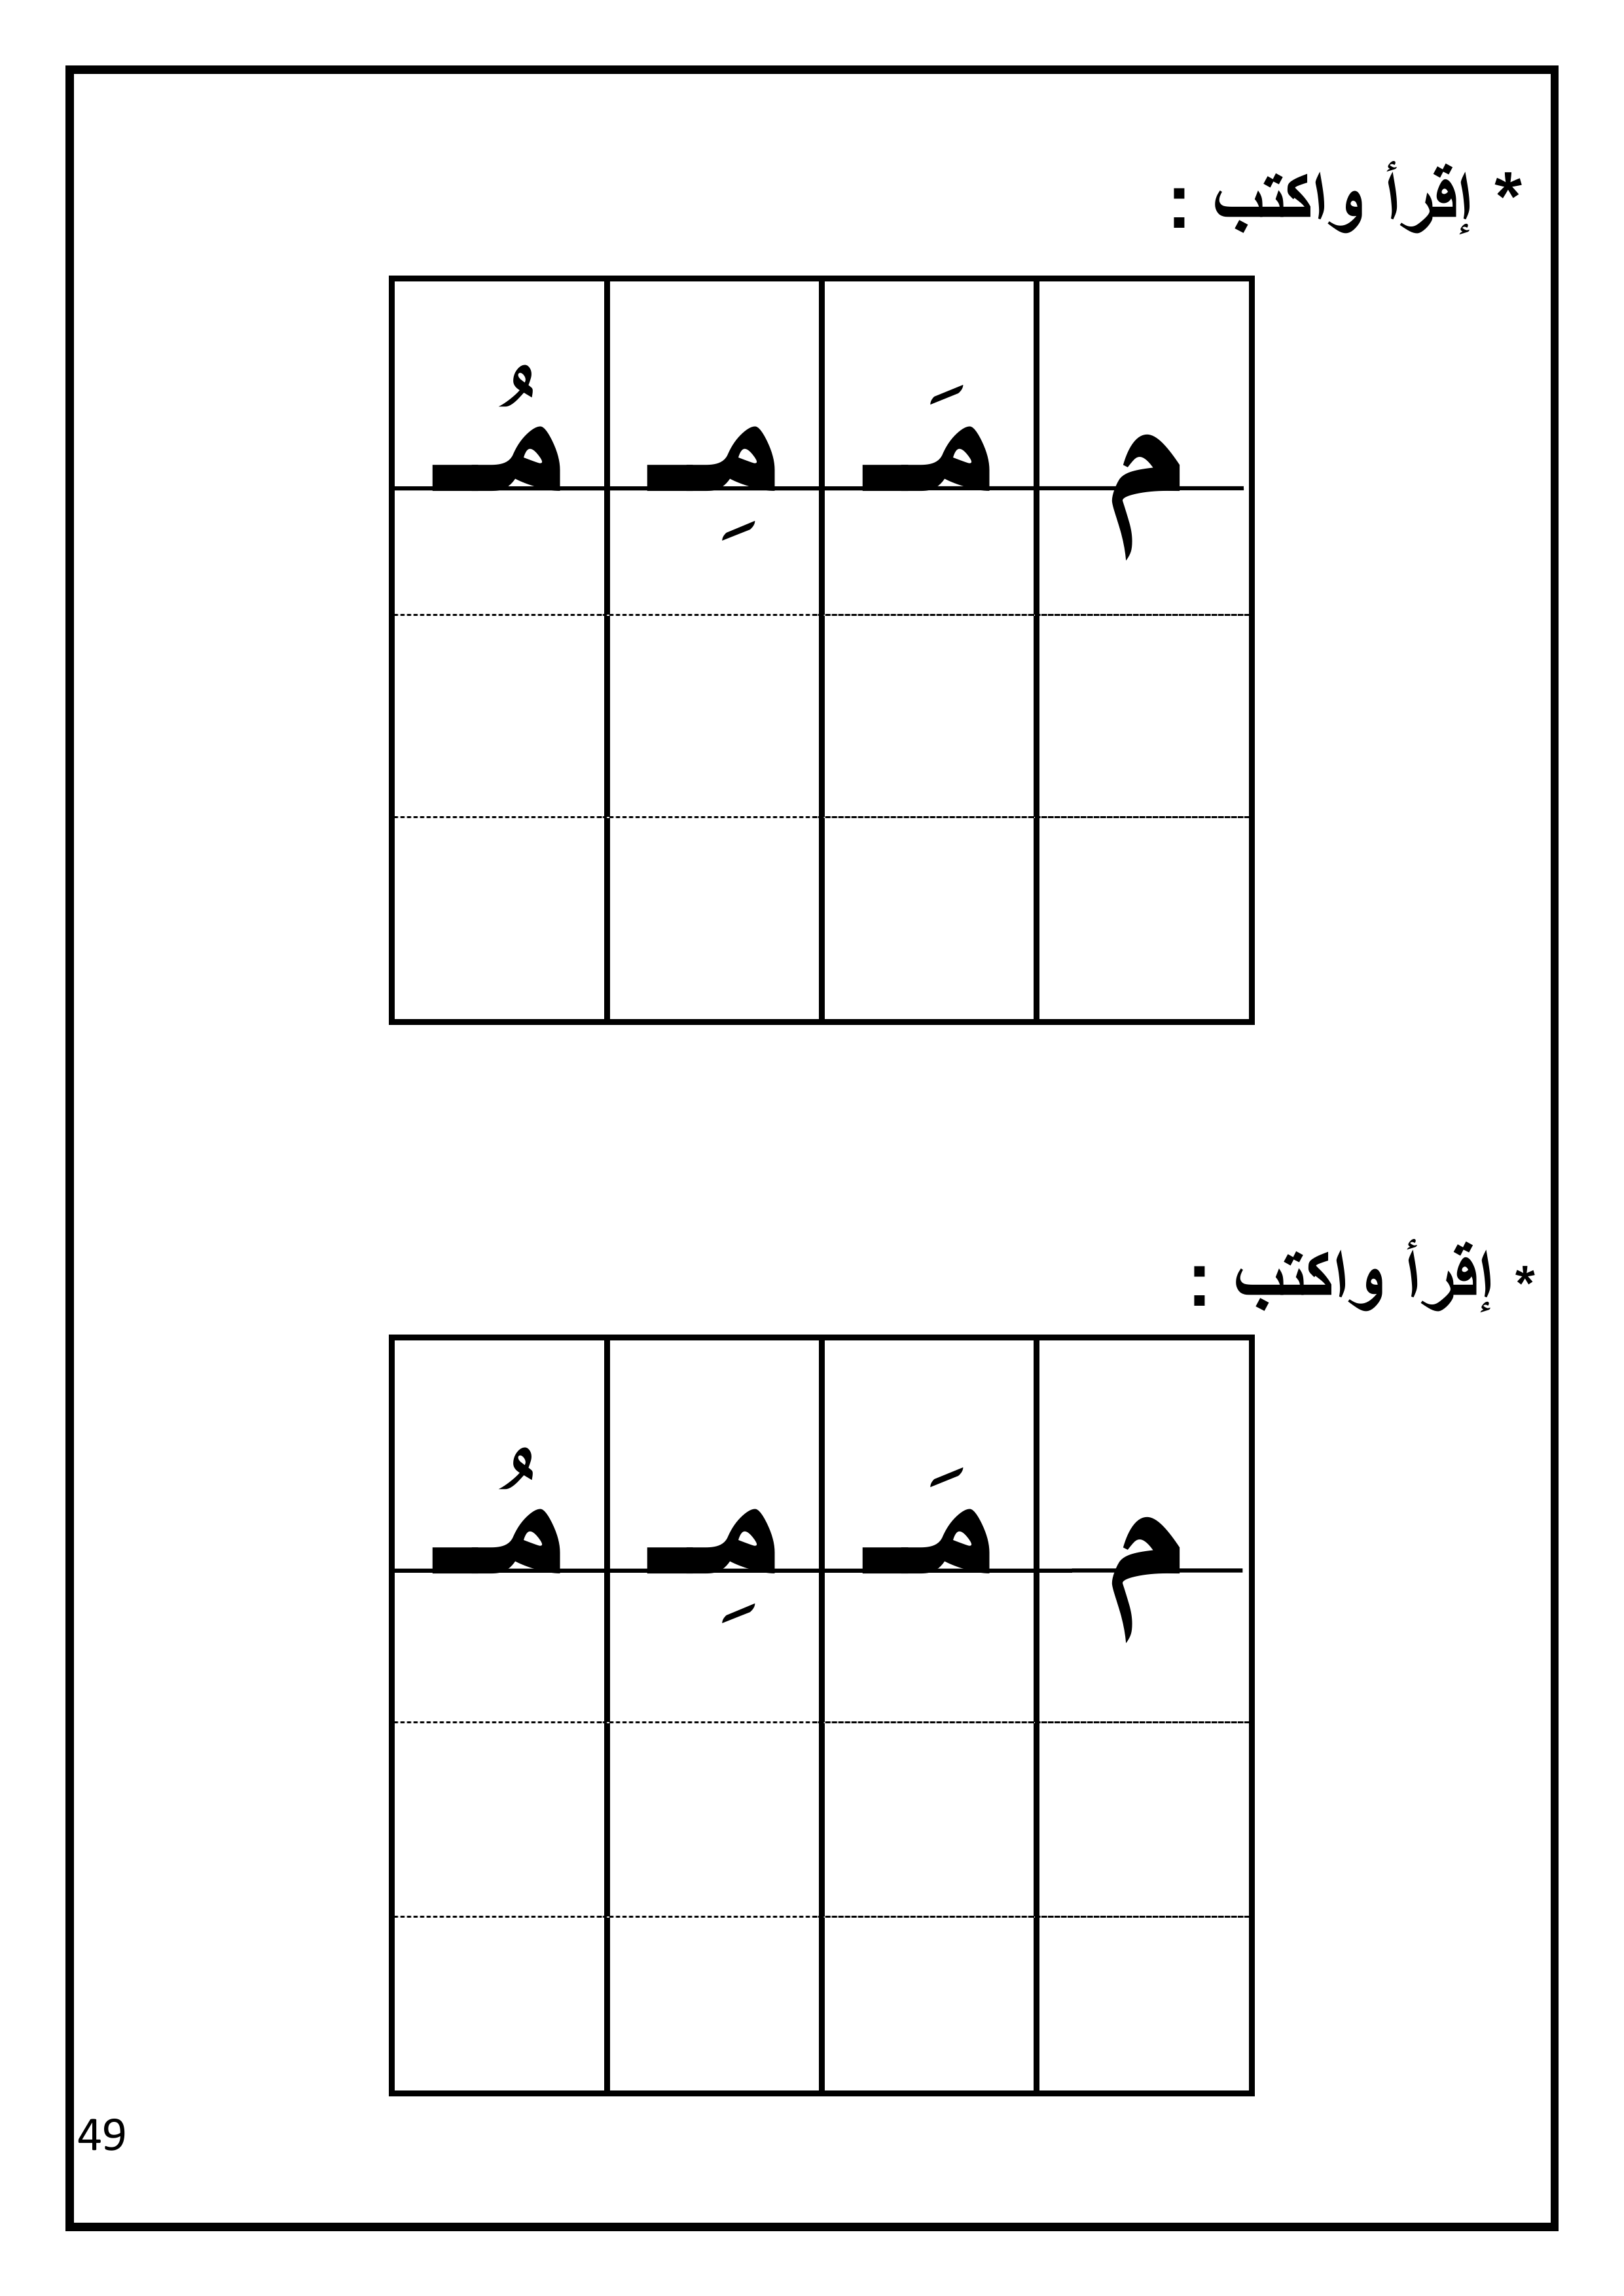 * إقرأ واكتب :
م مَـ مِـ مُـ
* إقرأ واكتب :
م مَـ مِـ مُـ
49